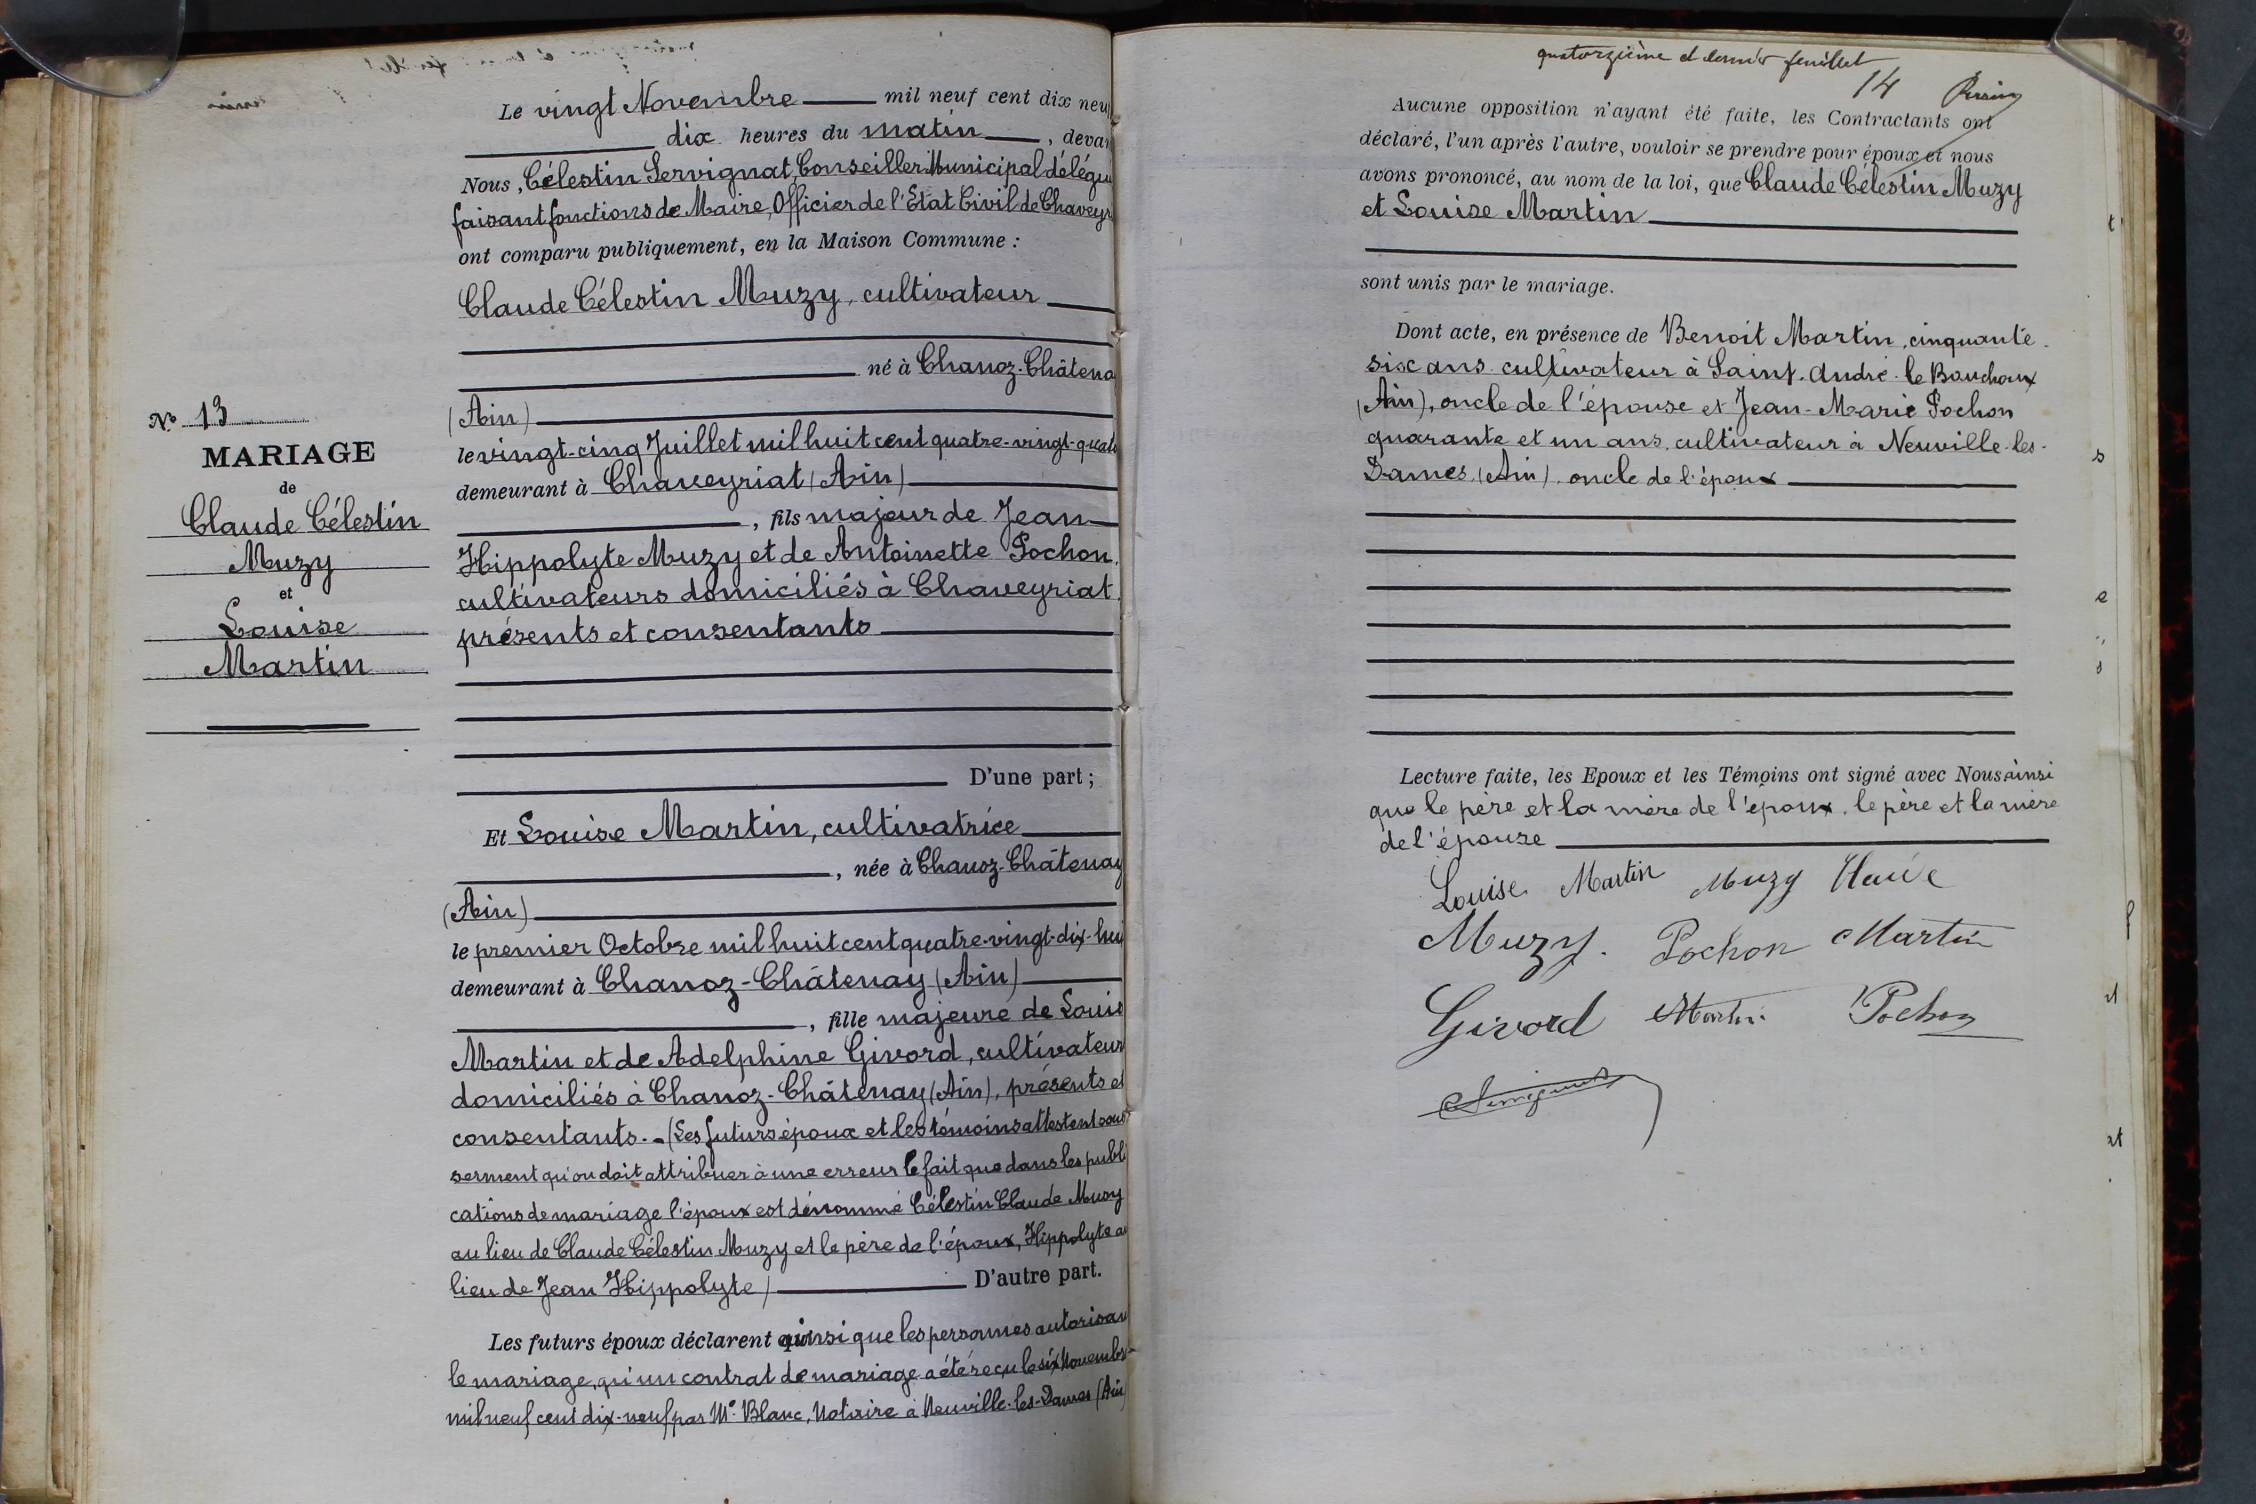 Le vingt Novembre mil neuf cent dix neu
dix heures du matin, devan
Nous, Célestin Servignat, Conseiller Municipal délégu
faisant fonctions de Maire, Officier de l'Etat Civil de Chaveyr
ont comparu publiquement, en la Maison Commune :
Claude Célestin Muzy, cultivateur
né à Chanoz-Châtena
(Ain)
le vingt-cinq Juillet mil huit cent quatre-vingt-quat
demeurant à Chaveyriat (Ain)
, fils majeur de Jean
Hippolyte Muzy et de Antoinette Pochon,
cultivateurs domiciliés à Chaveyriat,
présents et consentants
D'une part ;
N° 13
MARIAGE
de
Claude Célestin
Muzy
et
Louise
Martin
Et Louise Martin, cultivatrice
, née à Chanoz-Châtenay
(Ain)
le premier Octobre mil huit cent quatre-vingt-dix-hui
demeurant à Chanoz-Châtenay (Ain)
, fille majeure de Louis
Martin et de Adelphine Givord, cultivateur
domiciliés à Chanoz-Châtenay (Ain), présents et
consentants. - (Les futurs époux et les témoins attestent sous
serment qu'on doit attribuer à une erreur le fait que dans les publi
cations de mariage l'époux est dénommé Célestin Claude Muzy
au lieu de Claude Célestin Muzy et le père de l'époux, Hippolyte au
lieu de Jean Hippolyte) D'autre part.
Les futurs époux déclarent ainsi que les personnes autorisan
le mariage, qu'un contrat de mariage a été reçu le six Novembre
mil neuf cent dix-neuf par Me Blanc, Notaire à Neuville-les-Dames (Ain)
quatorzième et dernier feuillet
14
Aucune opposition n'ayant été faite, les Contractants ont
déclaré, l'un après l'autre, vouloir se prendre pour époux et nous
avons prononcé, au nom de la loi, que Claude Célestin Muzy
et Louise Martin
sont unis par le mariage.
Dont acte, en présence de Benoit Martin, cinquante-
six ans, cultivateur à Saint-André-le-Bouchoux
(Ain), oncle de l'épouse et Jean-Marie Pochon
quarante et un ans, cultivateur à Neuville-les-
Dames (Ain), oncle de l'époux
Lecture faite, les Epoux et les Témoins ont signé avec Nous ainsi
que le père et la mère de l'époux, le père et la mère
de l'épouse
Louise Martin Muzy Claude
Muzy. Pochon Martin
Givord Martin Pochon